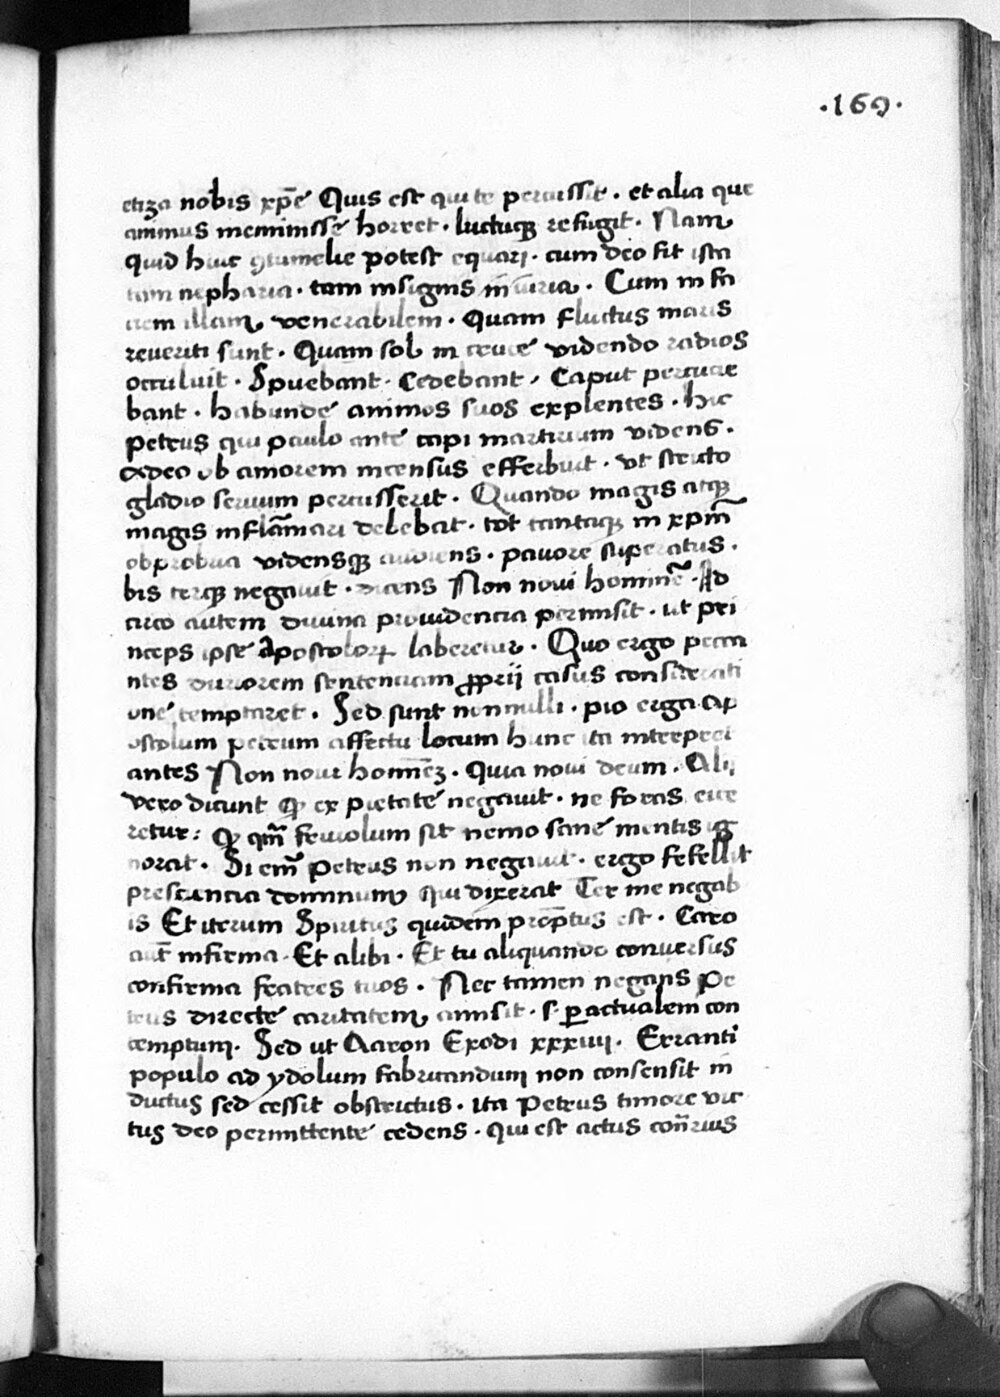 ·169·
etiza nobis xp̄e Quis est qui te percussit · et alia que
animus meminisse horret · luctuqꝫ refugit · Nam
quid huic ꝯtumelie potest equari · cum deo fit ista
tam nepharia · tam insignis iniuria · Cum in fa
ciem illam venerabilem · Quam fluctus maris
reueriti sunt · Quam sol in cruce videndo radios
occuluit · Spuebant · Cedebant · Caput percucie
bant · habunde animos suos explentes · hic
Petrus qui paulo ante capi martirium videns ·
adeo ob amorem incensus efferbuit · vt stricto
gladio seruum percusserit · Quando magis atqꝫ
magis inflāmari debebat · tot tantaqꝫ in xpm̄
obprobria vidensqꝫ audiens · pauore superatus ·
bis terqꝫ negauit · dicens Non noui hominē · Id
circo autem diuina prouidencia permisit · ut pri
nceps ipse Apostoloꝝ laberetur · Quo ergo pecca
ntes duriorem sentenciam ꝓprij casus considerati
one temptaret · Sed sunt nonnulli · pio erga ap
ostolum petrum affectu locum hunc ita interpret
antes Non noui hom̄eꝫ · quia noui deum · Alij
vero dicunt ꝙ ex pietate negauit · ne foras eice
retur : Qꝫ qm̄ friuolum sit nemo sane mentis ig
norat · Si em̄ Petrus non negauit · ergo fefellit
prescancia dominum qui dixerat Ter me negab
is Et iterum Spiritus quidem prōptus est · Caro
aut̄ infirma · Et alibi · Et tu aliquando conuersus
confirma fratres tuos · Nec tamen negans Pe
trus directe caritatem amisit · s · ꝑ actualem con
temptum · Sed ut Aaron Exodi xxxiiij · Erranti
populo ad ydolum fabricandum non consensit in
ductus sed cessit obstrictus · ita Petrus timore vic
tus deo permittente cedens · qui est actus con̄rius